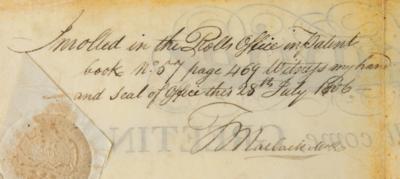 Inrolled in the Rolls Office in Patent
book No 57 page 469 Witness my hand
and seal of Office this 28th July 1806